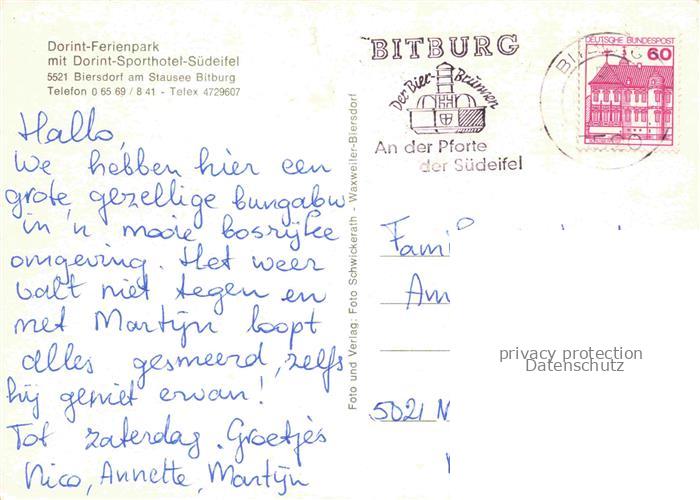 Dorint-Ferienpark
mit Dorint-Sporthotel-Südeifel
5521 Biersdorf am Stausee Bitburg
Telefon 0 65 69 / 8 41 - Telex 4729607
Hallo,
We hebben hier een
grote, gezellige bungalow
in 'n mooie bosrijke
omgeving. Het weer
valt niet tegen en
met Martijn loopt
alles gesmeerd, zelfs
hij geniet ervan!
Tot zaterdag. Groetjes
Nico, Annette, Martijn
Foto und Verlag: Foto Schwickerath - Waxweiler-Biersdorf
BITBURG
Der Bier-Brunnen
An der Pforte
der Südeifel
DEUTSCHE BUNDESPOST
60
Fami
Am
5021
privacy protection
Datenschutz